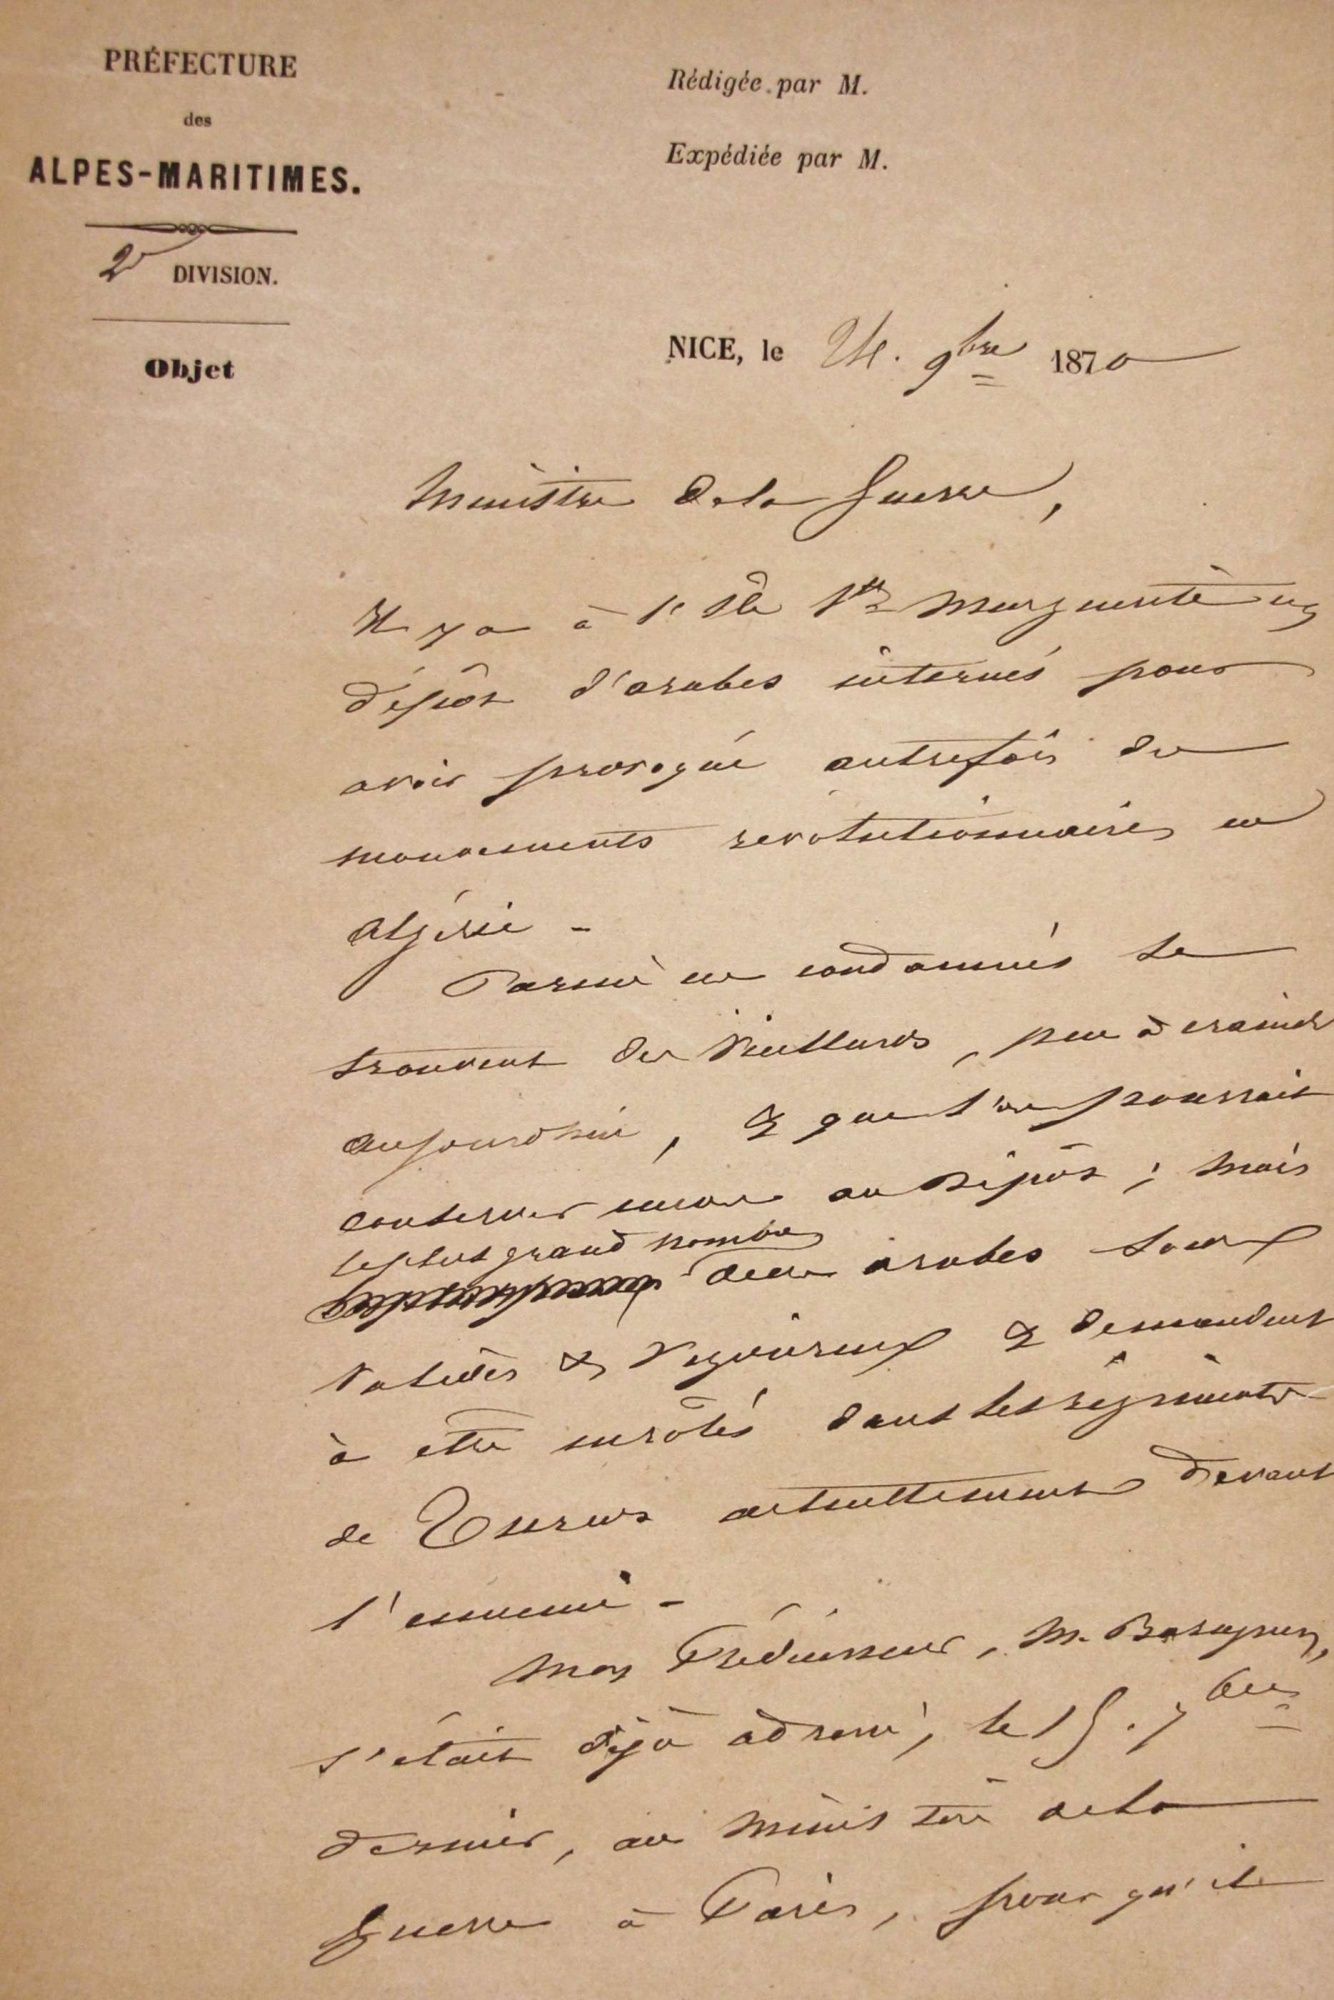 PRÉFECTURE
des
ALPES-MARITIMES.
2e DIVISION.
Objet
Rédigée par M.
Expédiée par M.
NICE, le 24. 9bre 1870
Ministre de la Guerre,
Il y a à l'Ile Ste Marguerite un
dépôt d'arabes internés pour
avoir provoqué autrefois des
mouvements revolutionnaires en
Algérie -
Parmi ces condamnés se
trouvent des Vieillards, peu à craindre
aujourd'hui, & que l'on pourrait
conserver encore au Dépôt; mais
le plus grand nombre
de ces arabes sont
Valides & Vigoureux & demandent
à être enrôlés dans les régiments
de Turcos actuellement devant
l'ennemi -
Mon Prédécesseur, M. Baragnon,
s'était déjà adressé, le 15. 7bre
dernier, au Ministre de la
Guerre à Paris, pour qu'il